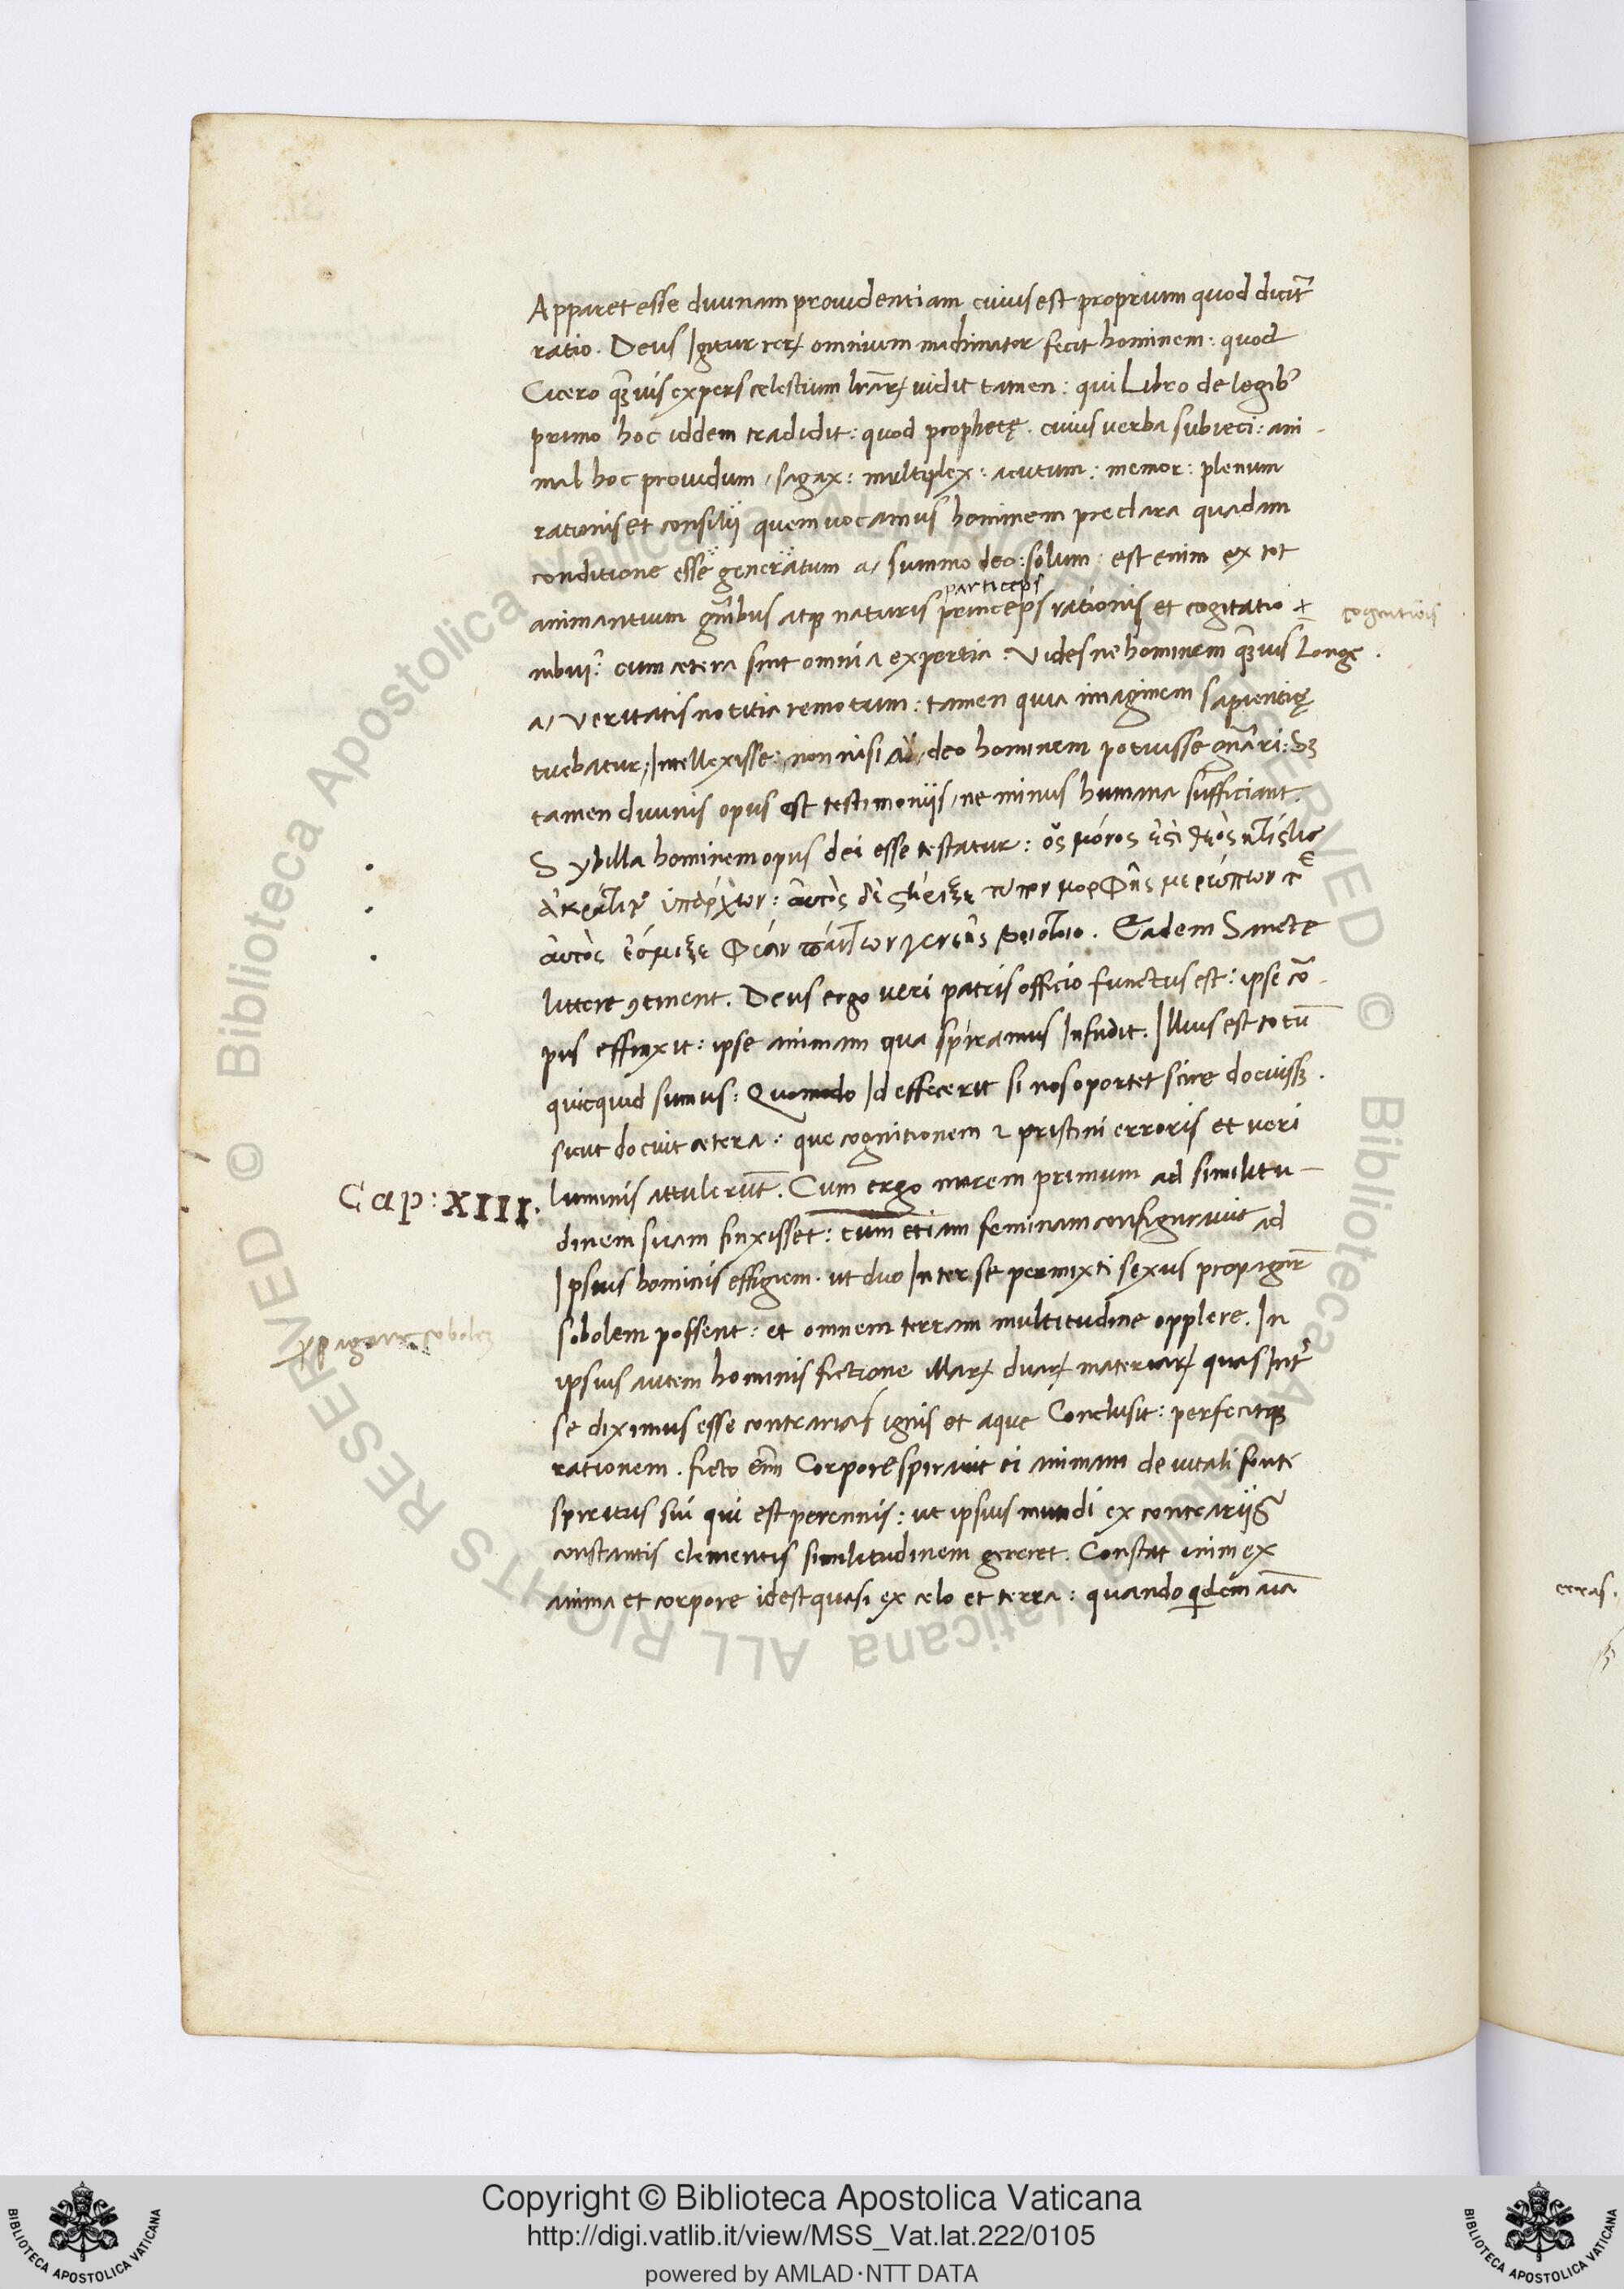 Apparet esse diuinam prouidentiam cuius est proprium quod dicit̃
ratio. Deus Igitur reꝝ omnium machinator fecit hominem: quod
Cicero q̃uis expers celestium lr̃aꝝ uidit tamen: qui Libro de legib⁹
primo hoc iddem tradidit: quod prophetę. cuius uerba subieci: ani-
mal hoc prouidum, sagax: multiplex: acutum: memor: plenum
rationis et consilii quem uocamus hominem preclara quadam
conditione esse generatum a, summo deo: solum: est enim ex tot
particeps
animantium gñibus atqꝫ naturis princeps rationis et cogitatio +
cogitatiõis
nibus: cum cetera sint omnia expertia: Videsne hominem q̃uis Longe.
a, ueritatis notitia remotum: tamen quia imaginem sapientię
tuebatur, Intellexisse: non nisi a deo hominem potuisse gñari: Sꝫ
tamen diuinis opus est testimoniis, ne minus humana sufficiant.
Sybilla hominem opus dei esse testatur: ὃς μόνος ἐστὶ θεὸς κτίστης
ἀκράτητος ὑπάρχων: αὐτὸς δὲ στήριξε τύπον μορφῆς μερόπων τε
αὐτὸς ἔσμιξε φύσιν πάντων γενεῆς βιότοιο. Eadem Sancte
littere ꝯtinent. Deus ergo ueri patris officio functus est: ipse cor-
pus effinxit: ipse animam qua spiramus Infudit. Illius est totũ
quicquid sumus: Quomodo Id effecerit si nos oportet scire docuissꝫ.
sicut docuit cetera: que cognitionem ⁊ pristini erroris et ueri
Cap: XIII.
luminis attulerũt. Cum ergo marem primum ad similitu-
dinem suam finxisset: tum etiam feminam configurauit ad
Ipsius hominis effigiem. ut duo Inter se permixti sexus propagar̃
sobolem possent: et omnem terram multitudine opplere. In
ꝓpagare sobolem
ipsius autem hominis fictione illaꝝ duaꝝ materiaꝝ quas Int̃
se diximus esse contrarias ignis et aque Conclusit: perfecitqꝫ
rationem. ficto em̃ Corpore spirauit ei animam de uitali fonte
spiritus sui qui est perennis: ut ipsius mundi ex contrariis
constantis elementis similitudinem gereret. Constat enim ex
anima et corpore id est quasi ex celo et terra: quando qdem aĩa
terras.
Copyright © Biblioteca Apostolica Vaticana
http://digi.vatlib.it/view/MSS_Vat.lat.222/0105
powered by AMLAD·NTT DATA
BIBLIOTECA APOSTOLICA VATICANA
BIBLIOTECA APOSTOLICA VATICANA
© Biblioteca Apostolica Vaticana ALL RIGHTS RESERVED
© Biblioteca Apostolica Vaticana ALL RIGHTS RESERVED